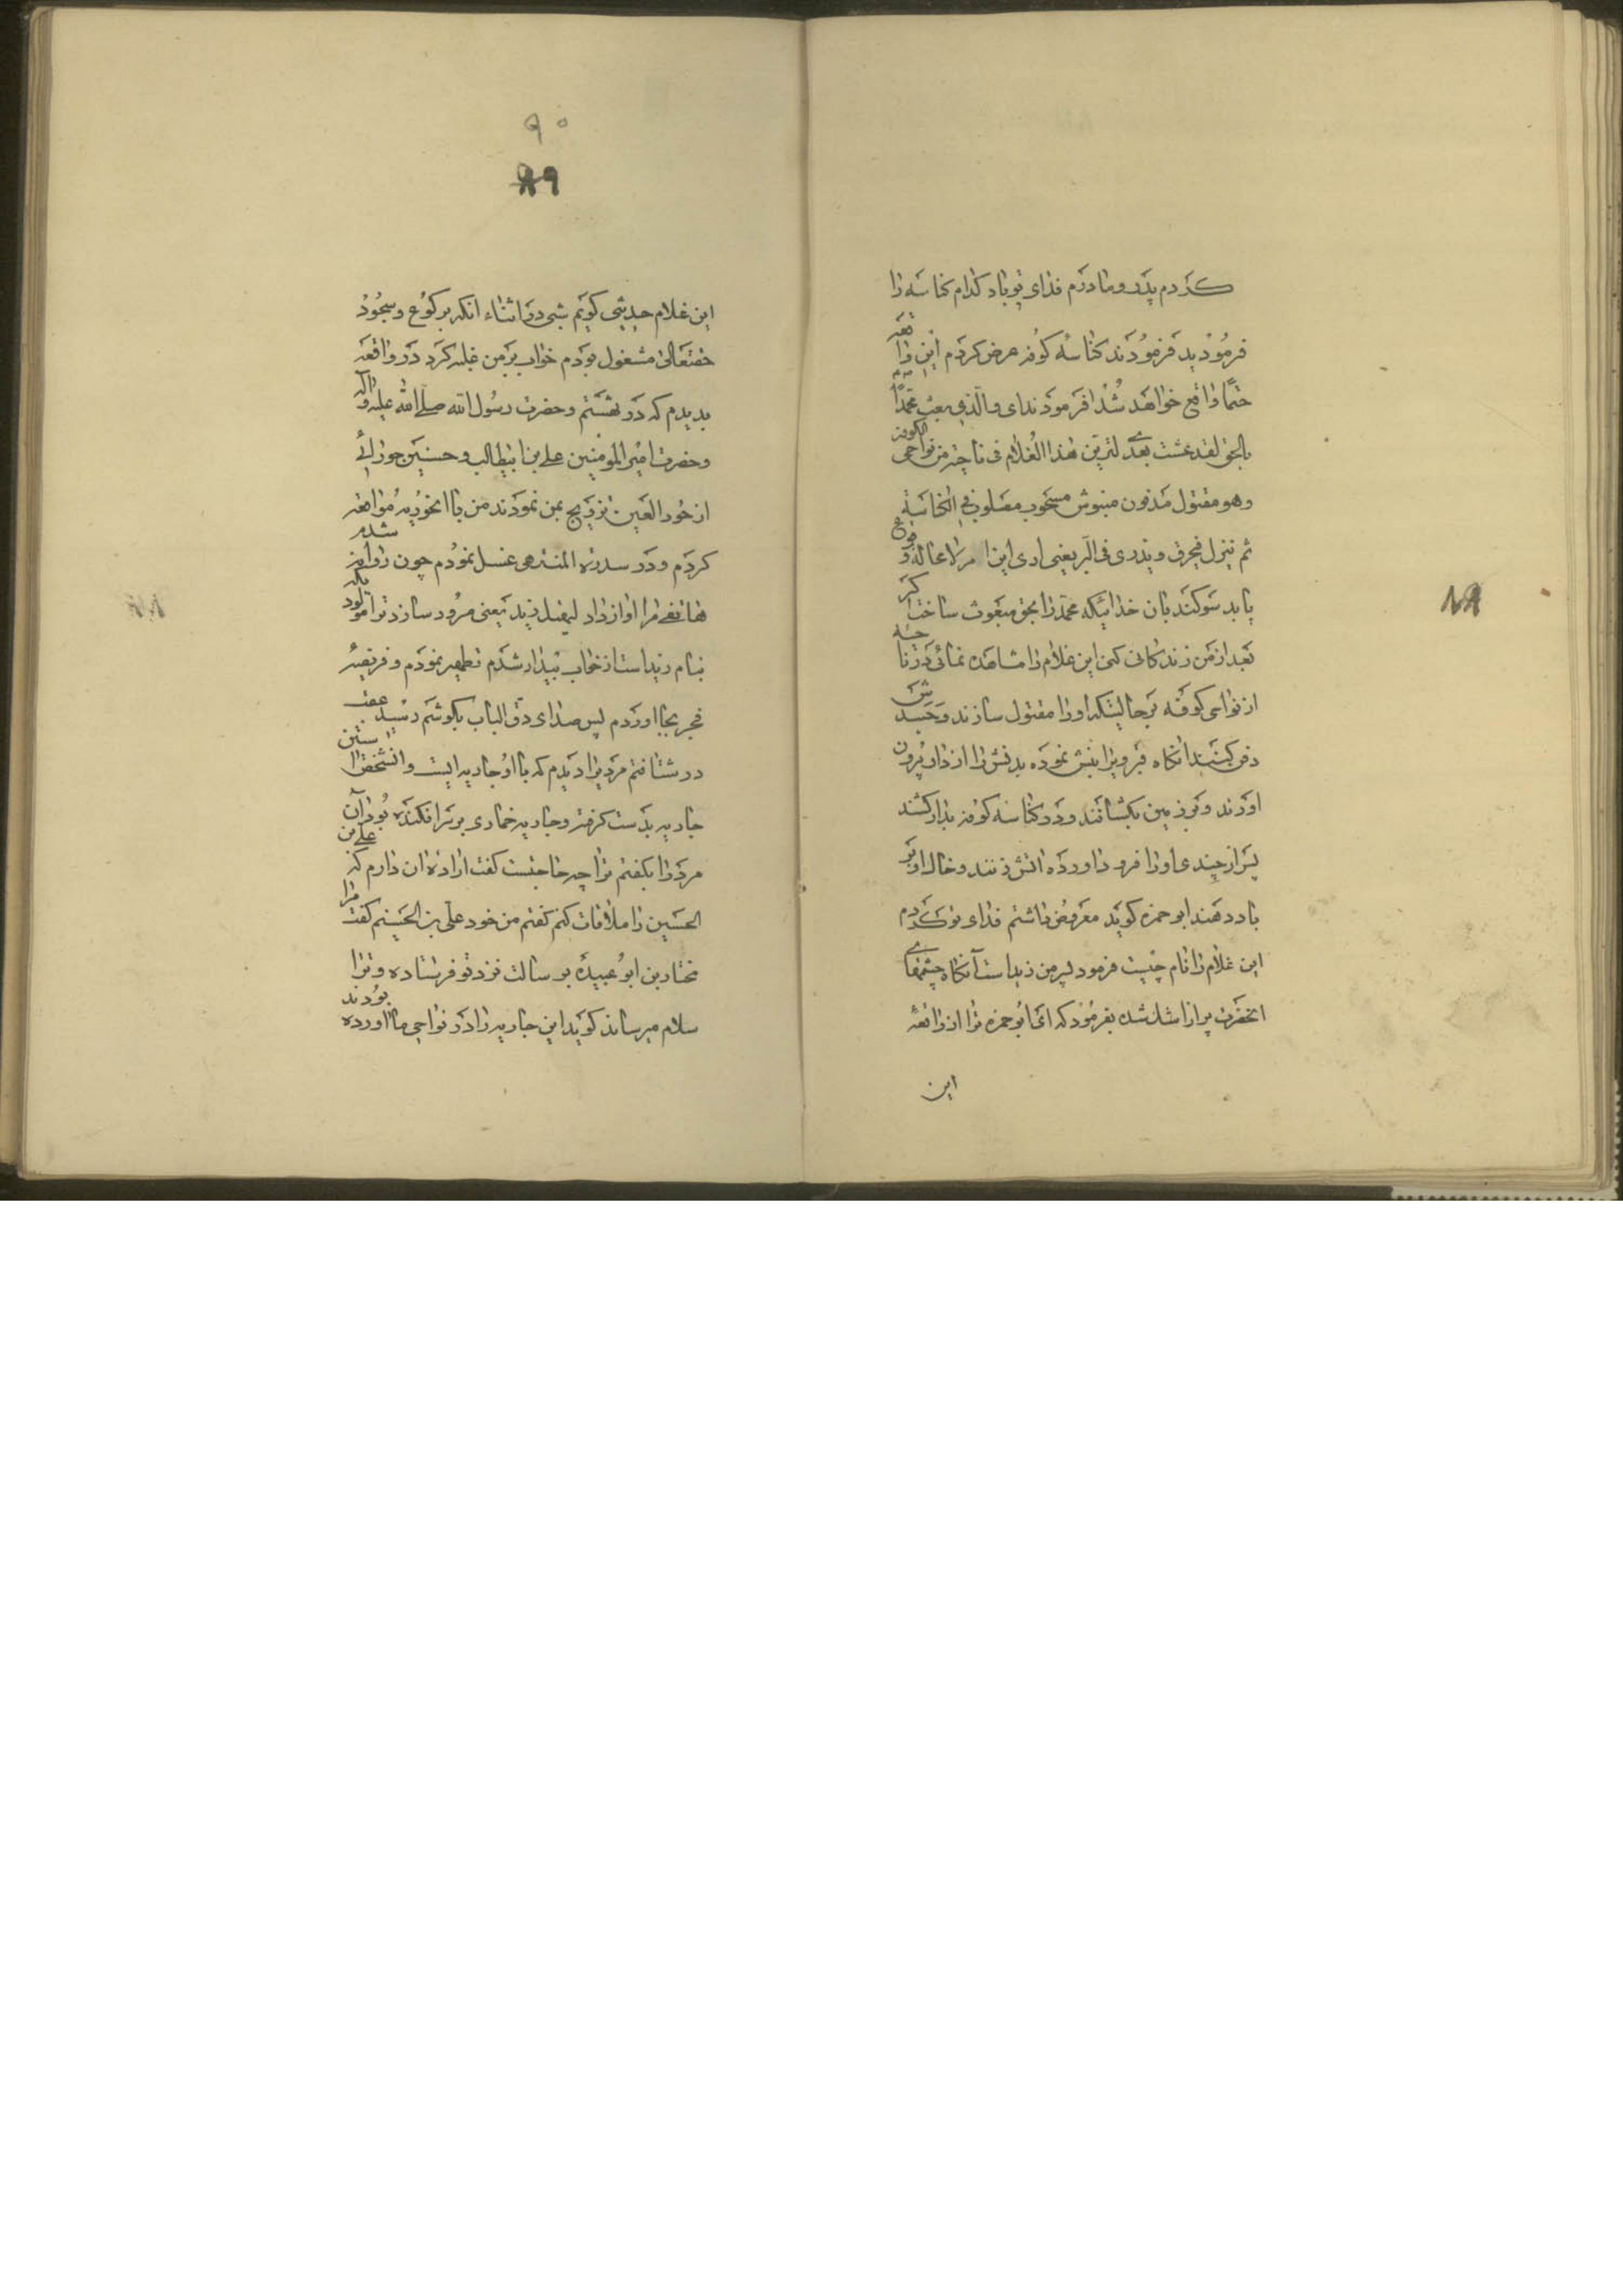 کردم پدر و مادرم فدای تو باد کدام کناسه را
فرمودید فرمودند کناسهٔ کوفه عرض کردم این واقعه
حتمًا واقع خواهد شد فرمودند ای والّذی بعث محمّدًا
بالحق لقد عشت بعدی لترین هذا الغلام فی ناحیة من نواحی الکوفه
وهو مقتول مدفون منبوش مسحوب مصلوب فی الکناسة
ثم ینزل فیحرق ویذری فی البر یعنی اری این امر لا محاله وقوع
یابد سوکند بان خدائیکه محمد را بحق مبعوث ساخت اکر
بعد از من زندکانی کنی این غلام را مشاهده نمائی در ناحیه
از نواحی کوفه بر حالیتکه او را مقتول سازند و جسدش
دفن کنند انکاه قبر ویرا نبش نموده بدنش را از ان بیرون
اورند و بر زمین بکشانند و در کناسه کوفه بدار کشند
پس از چندی او را فرود اورده اتش زنند و خاک او بر
باد دهند ابو حمزه کوید معروض داشتم فدای تو کردم
این غلام را نام چیست فرمود پسر من زید است آنکاه چشمهای
انحضرت پر از اشک شده بفرمود که ای ابو حمزه ترا از واقعهٔ
این
٨٩
٩٠
٨٩
این غلام حدیثی کویم شبی در اثناء انکه برکوع و سجود
حقتعالی مشغول بودم خواب بر من غلبه کرد در واقعه
بدیدم که در بهشتم و حضرت رسول الله صلی الله علیه واله
و حضرت امیر المومنین علی بن ابیطالب و حسنین حورائی
از حور العین تزویج بمن نمودند من با انحوریه مواقعه
کردم و در سدرة المنتهی غسل نمودم چون روانه شدم
هاتفی مرا اواز داد لیهنک زید یعنی مسرور سازد ترا مولود
بنام زید است از خواب بیدار شدم تطهیر نمودم و فریضه
فجر بجا اوردم پس صدای دق الباب بکوشم رسید عقب
در شتافتم مردیرا دیدم که با او جاریه ایست و انشخص استین
جاریه بدست کرفته و جاریه خماری بر سر افکنده بود آن
مرد را بکفتم ترا چه حاجتست کفت اراده ان دارم که علی بن
الحسین را ملاقات کنم کفتم من خود علی بن الحسینم کفت مرا
مختار بن ابو عبیده برسالت نزد تو فرستاده و ترا
سلام میرساند کوید این جاریه را در نواحی ما اورده بودند